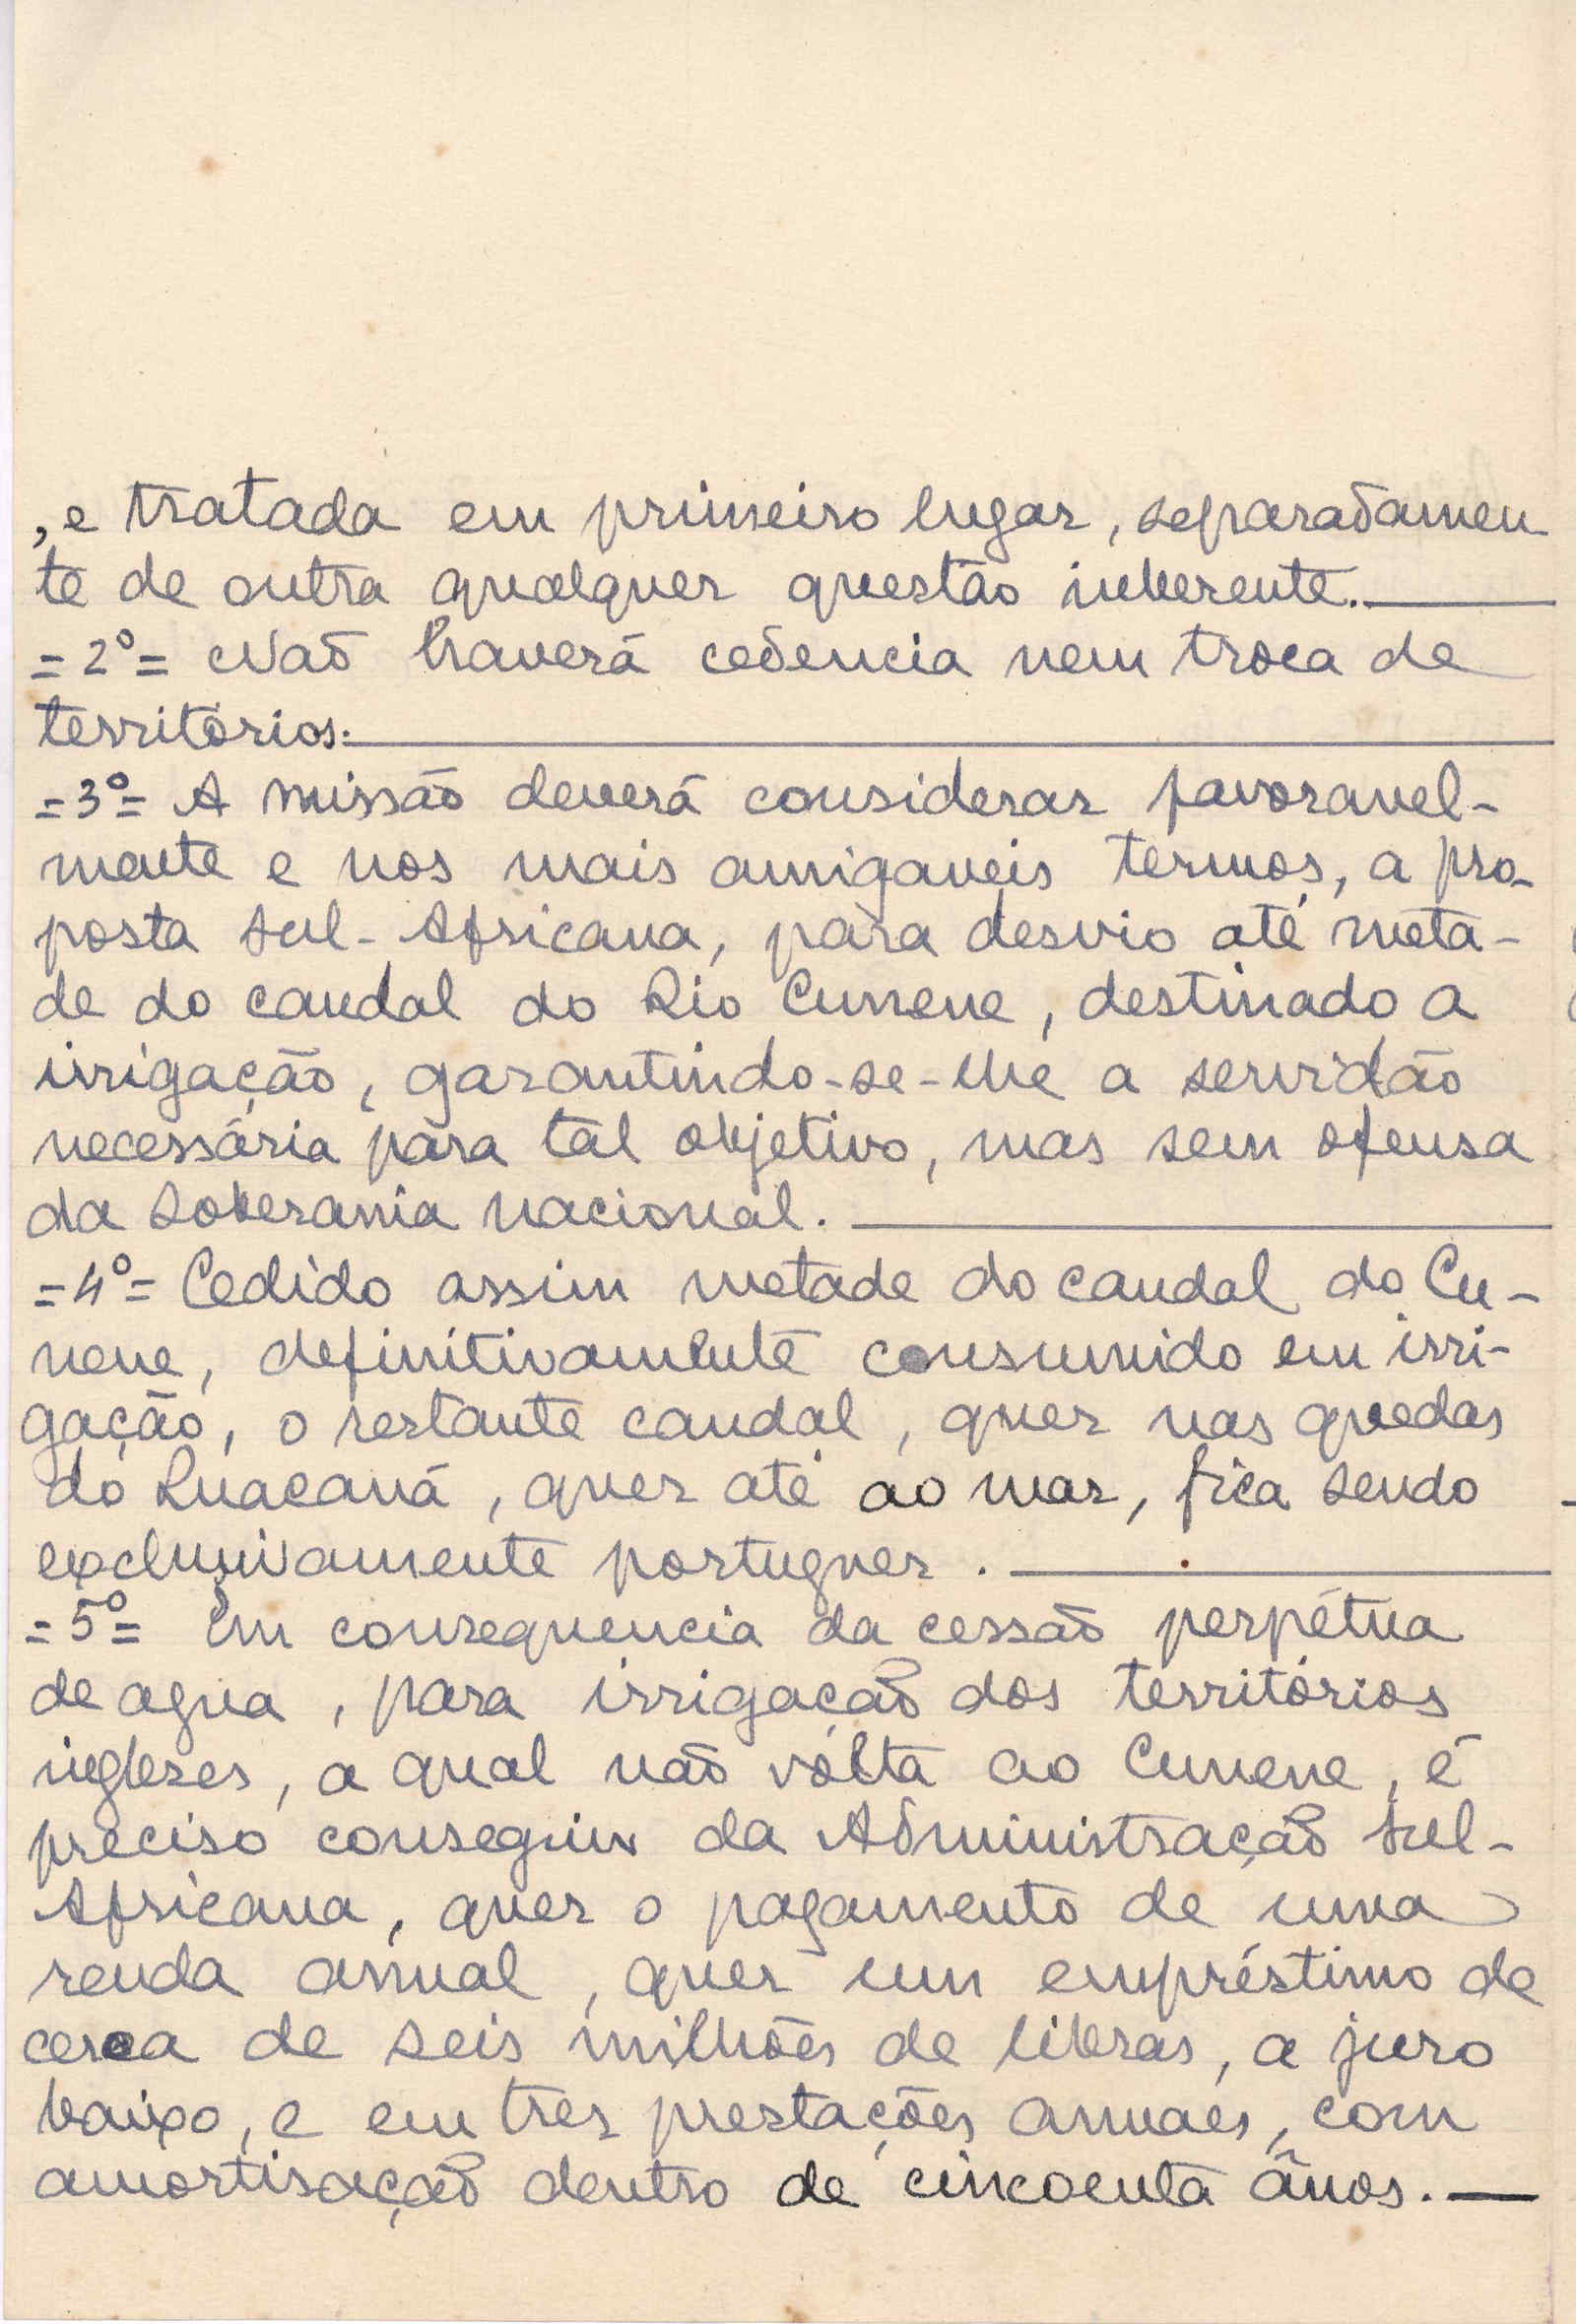 , e tratada em primeiro lugar, separadamen-
te de outra qualquer questão inherente.
=2º= Não haverá cedencia nem troca de
territórios.
=3º= A missão deverá considerar favoravel-
mente e nos mais amigaveis termos, a pro-
posta Sul-Africana, para desvio até meta-
de do caudal do Rio Cunene, destinado a
irrigação, garantindo-se-lhe a servidão
necessária para tal objetivo, mas sem ofensa
da soberania nacional.
=4º= Cedido assim metade do caudal do Cu-
nene, definitivamente consumido em irri-
gação, o restante caudal, quer nas quedas
do Ruacaná, quer até ao mar, fica sendo
exclusivamente portuguez.
=5º= Em consequencia da cessão perpétua
de agua, para irrigação dos territórios
inglezes, a qual não vólta ao Cunene, é
preciso conseguir da Administração Sul-
Africana, quer o pagamento de uma
renda anual, quer um empréstimo de
cerca de seis milhões de libras, a juro
baixo, e em tres prestações anuaes, com
amortisação dentro de cincoenta ãnos.